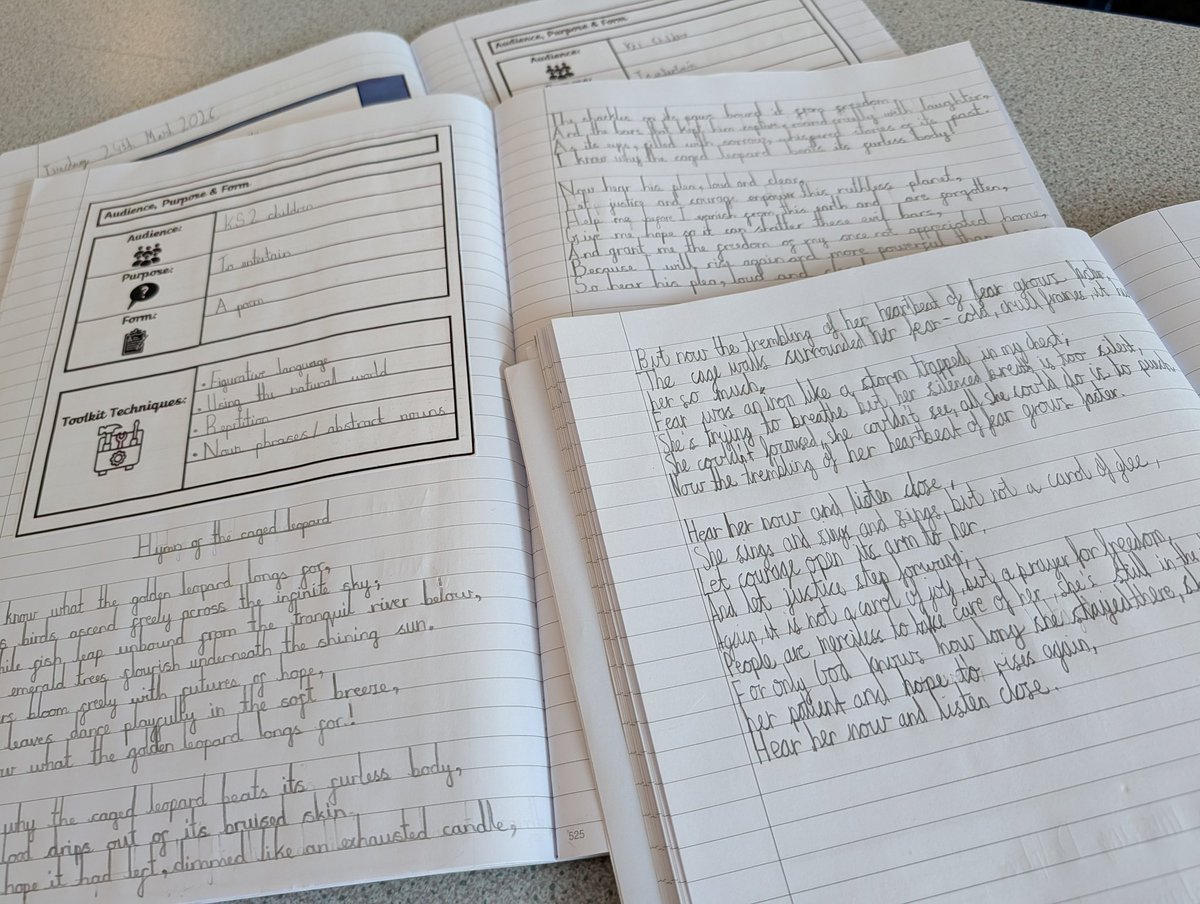 Tuesday 24th 2026
Audience, Purpose & Form
Audience:
Audience, Purpose & Form
Audience:
KS2 children
Purpose:
To entertain
Form:
A poem
Toolkit Techniques:
• Figurative language
• Using the natural world
• Repitition
• Noun phrases / abstract nouns
Hymn of the caged leopard
know what the golden leopard longs for,
birds ascend freely across the infinite sky;
fish leap unbound from the tranquil river below,
emerald trees flourish underneath the shining sun.
bloom freely with futures of hope,
leaves dance playfully in the soft breeze,
what the golden leopard longs for!
why the caged leopard beats its furless body,
drips out of its bruised skin.
hope it had left, dimmed like an exhausted candle,
525
shackles on its paws bound it from freedom
And the bars that kept him captive, roared cruelly with laughter,
As its eyes, filled with sorrow, whispered stories of its past.
I know why the caged leopard beats its furless body!
Now hear his plea, loud and clear,
Let justice and courage empower this ruthless planet,
Help me before I vanish from this earth and are forgotten,
Give me hope so it can shatter these evil bars,
And grant me the freedom of my once not appreciated home,
Because I will rise again and more powerful
So hear his plea, loud and
But now the trembling of her heartbeat of fear grows faster,
The cage walls surrounded her fear-cold, chill frames it
her so much,
Fear was an iron like a storm trapped in my chest,
She's trying to breathe but her silenced breath is too silent,
She couldn't focuses, she couldn't see, all she could do is to
Now the trembling of her heartbeat of fear grows faster.
Hear her now and listen close,
She sings and sings and sings, but not a carol of glee,
Let courage open its arm to her,
And let justice step forward;
Again, it is not a carol of joy, but a prayer for freedom,
People are merciless to take care of her, she's still in
For only God knows how long she stayed there,
her patient and hope to rises again,
Hear her now and listen close.